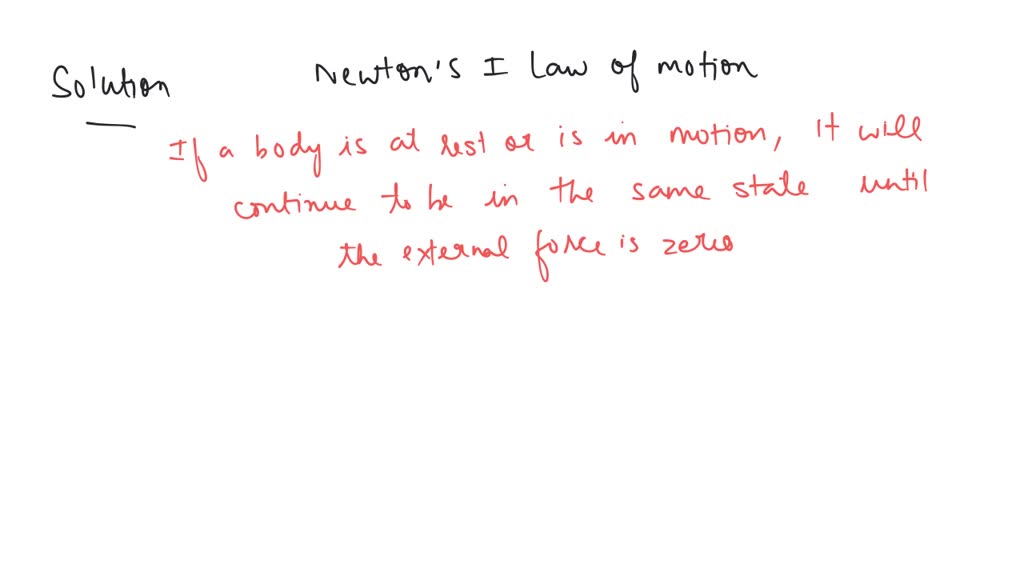 Solution
Newton's I Law of motion
If a body is at rest or is in motion, it will
continue to be in the same state until
the external force is zero